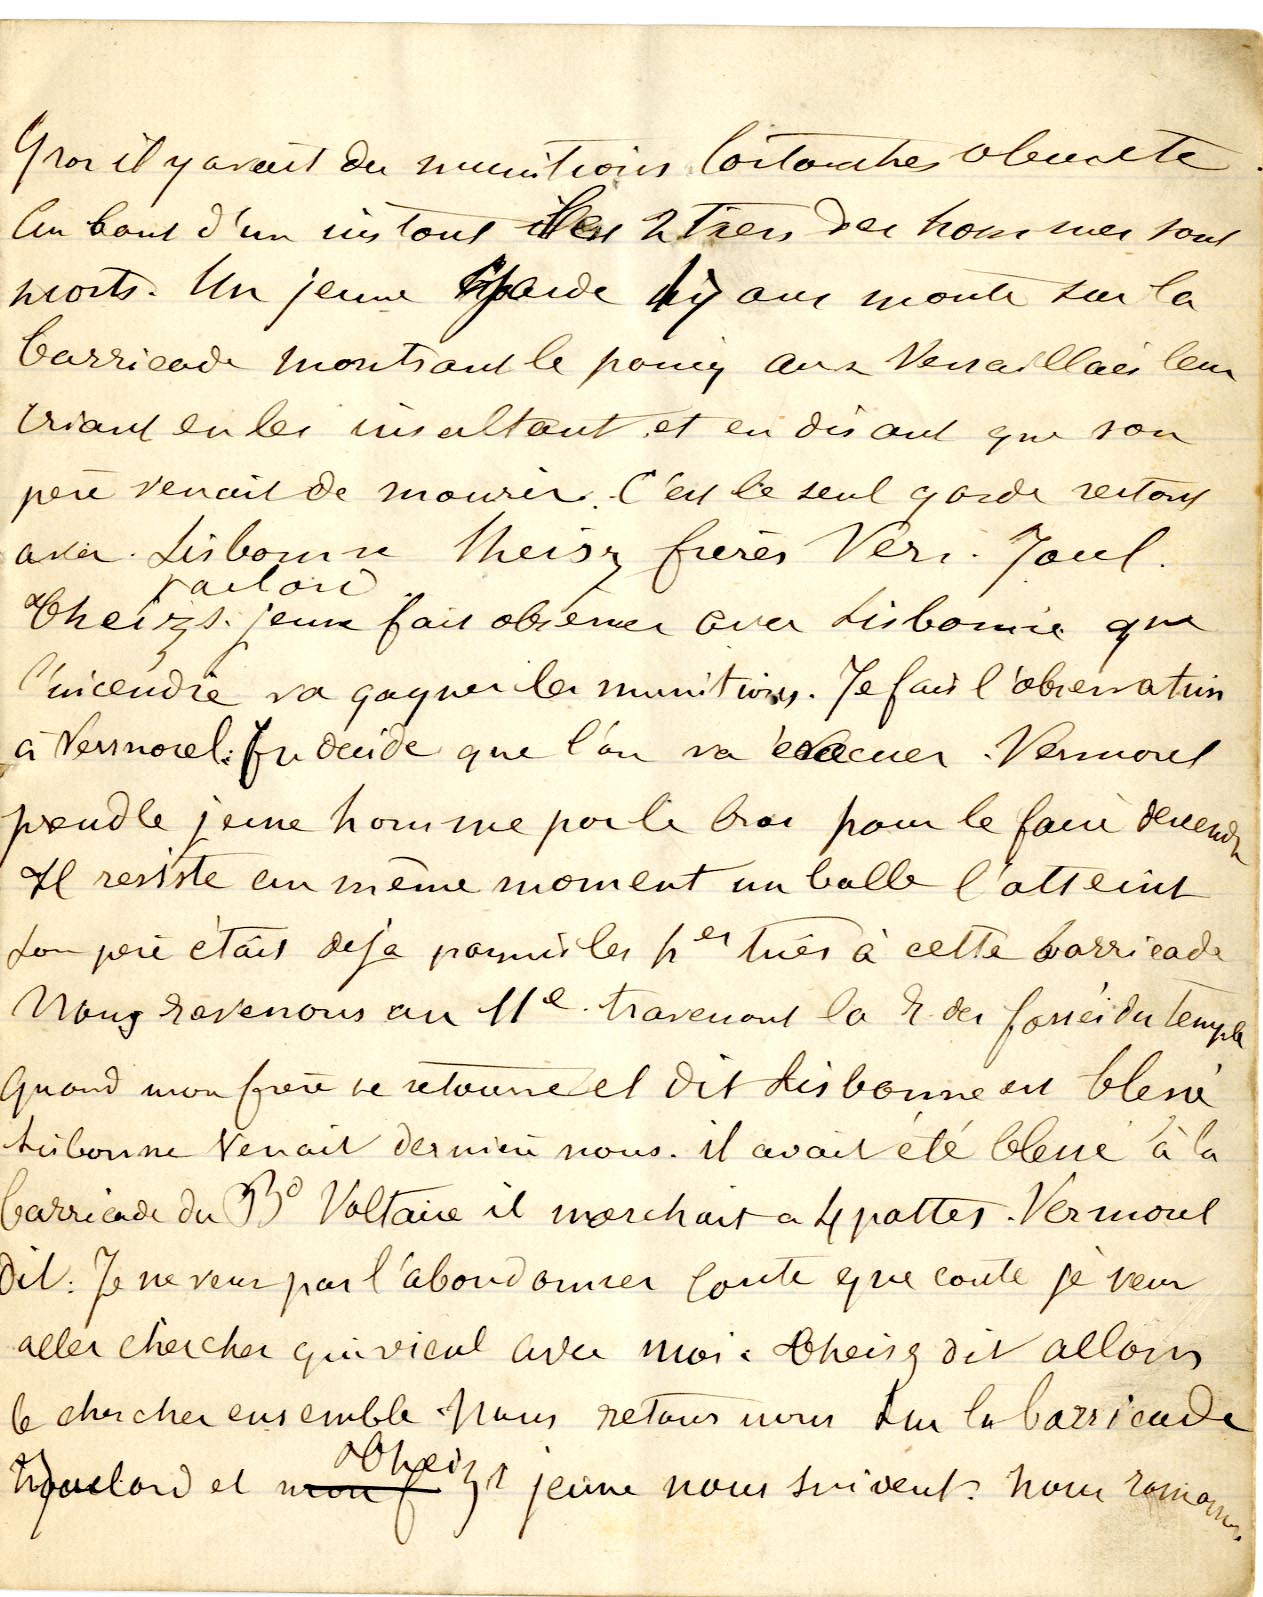 Gros il y avait des munitions Cartouches obus etc.
Au bout d'un instant les 2 tiers des hommes sont
morts. Un jeune garde ans monte sur la
barricade montrant le poing aux Versaillais leur
criant en les insultant et en disant que son
père venait de mourir. C'est le seul garde restant
avec. Lisbonne Theisz frères Veri. Jaul.
Theizs. jeune fait observer avec Lisbonne que
l'incendie va gagner les munitions. Je fais l'observation
à Vermorel. decide que l'on va évacuer. Vermorel
prend le jeune homme par le bras pour le faire descendre
Il resiste au même moment un balle l'atteint
Son père étais deja parmis les pers tués à cette barricade
Nous revenons au 11e. traversant la R. des fossés du temple
Quand mon frère se retourne et dit Lisbonne est blessé
Lisbonne venait dernière nous. il avait été blessé à la
barricade du Bd Voltaire il marchait a 4 pattes. Vermorel
dit: Je ne veux pas l'abandonner coute que coute je veux
aller chercher qui vient avec moi. Theisz dit allons
le chercher ensemble. Nous retournons sur la barricade
et mon f Theizs jeune nous suivent. nous ramenons.